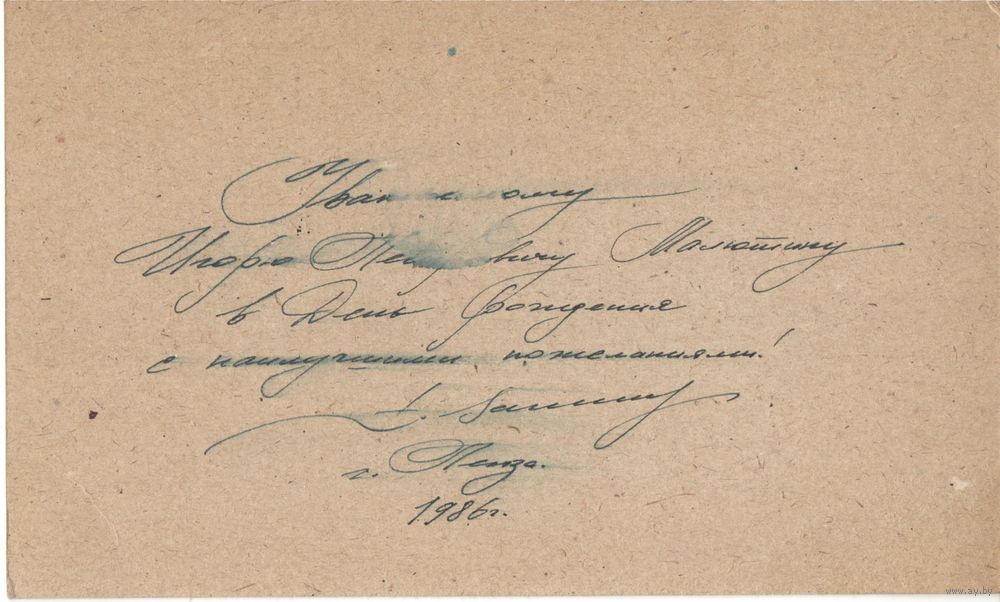 Уважаемому
Игорю Петровичу Малютину
в День Рождения
с наилучшими пожеланиями!
г. Пенза.
1986г.
www.ay.by